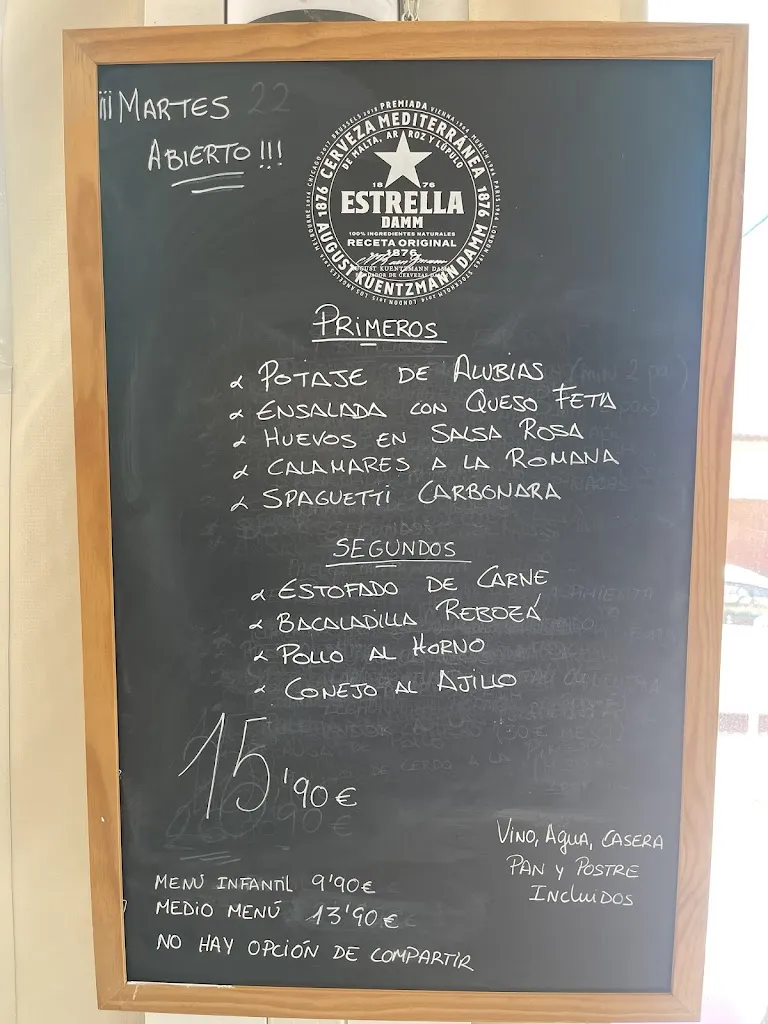 ¡¡¡MARTES 22
ABIERTO!!!
PREMIADA
CERVEZA MEDITERRÁNEA
DE MALTA, ARROZ Y LÚPULO
1876
1876
1876
ESTRELLA
DAMM
100% INGREDIENTES NATURALES
RECETA ORIGINAL
1876
AUGUST KUENTZMANN DAMM
AUGUST KUENTZMANN DAMM
PRIMEROS
POTAJE DE ALUBIAS
ENSALADA CON QUESO FETA
HUEVOS EN SALSA ROSA
CALAMARES A LA ROMANA
SPAGUETTI CARBONARA
SEGUNDOS
ESTOFADO DE CARNE
BACALADILLA REBOZÁ
POLLO AL HORNO
CONEJO AL AJILLO
15'90€
VINO, AGUA, CASERA
PAN Y POSTRE
INCLUIDOS
MENÚ INFANTIL 9'90€
MEDIO MENÚ 13'90€
NO HAY OPCIÓN DE COMPARTIR